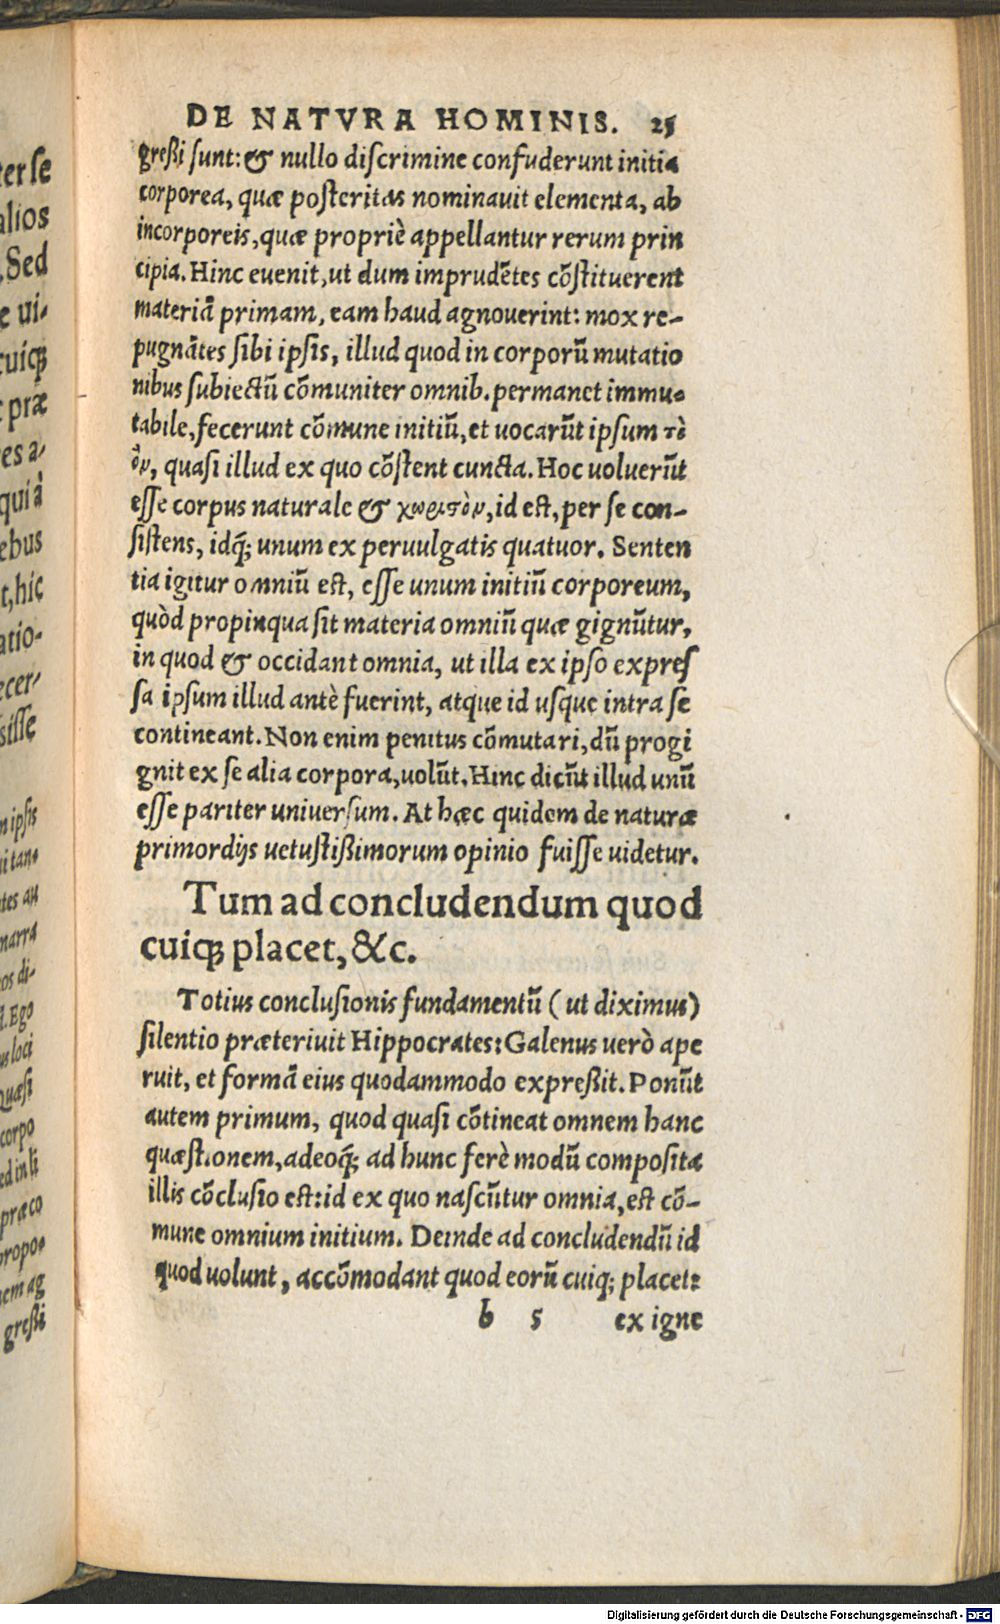 DE NATVRA HOMINIS. 25
greßi ſunt: & nullo diſcrimine confuderunt initia
corporea, quæ poſteritas nominauit elementa, ab
incorporeis, quæ propriè appellantur rerum prin
cipia. Hinc euenit, ut dum imprudẽtes cõſtituerent
materiã primam, eam haud agnouerint: mox re-
pugnãtes ſibi ipſis, illud quod in corporũ mutatio
nibus ſubiectũ cõmuniter omnib. permanet immu-
tabile, fecerunt cõmune initiũ, et uocarũt ipſum τὸ
ὂν, quaſi illud ex quo cõſtent cuncta. Hoc uoluerũt
eſſe corpus naturale & χωριστὸν, id eſt, per ſe con-
ſiſtens, idq́; unum ex peruulgatis quatuor. Senten
tia igitur omniũ eſt, eſſe unum initiũ corporeum,
quòd propinqua ſit materia omniũ quæ gignũtur,
in quod & occidant omnia, ut illa ex ipſo expreſ
ſa ipſum illud antè fuerint, atque id uſque intra ſe
contineant. Non enim penitus cõmutari, dũ progi
gnit ex ſe alia corpora, uolũt. Hinc dicũt illud unũ
eſſe pariter uniuerſum. At hæc quidem de naturæ
primordijs uetuſtißimorum opinio fuiſſe uidetur.
Tum ad concludendum quod
cuiq; placet, &c.
Totius concluſionis fundamentũ (ut diximus)
ſilentio præteriuit Hippocrates: Galenus uerò ape
ruit, et formã eius quodammodo expreßit. Ponũt
autem primum, quod quaſi cõtineat omnem hanc
quæſtionem, adeoq́; ad hunc ferè modũ compoſita
illis cõcluſio eſt: id ex quo naſcũtur omnia, eſt cõ-
mune omnium initium. Deinde ad concludendũ id
quod uolunt, accõmodant quod eorũ cuiq; placet:
b 5 ex igne
ter ſe
alios
Sed
e ui-
cuiq;
præ
es a-
qui à
ebus
t, hic
atio-
ecer-
ſiſſe
n ipſis
i tan-
tes au
narra
os di-
Ego
us loci
Quaſi
corpo
ed in li
præ co
propo-
em ag
greßi
Digitalisierung gefördert durch die Deutsche Forschungsgemeinschaft - DFG